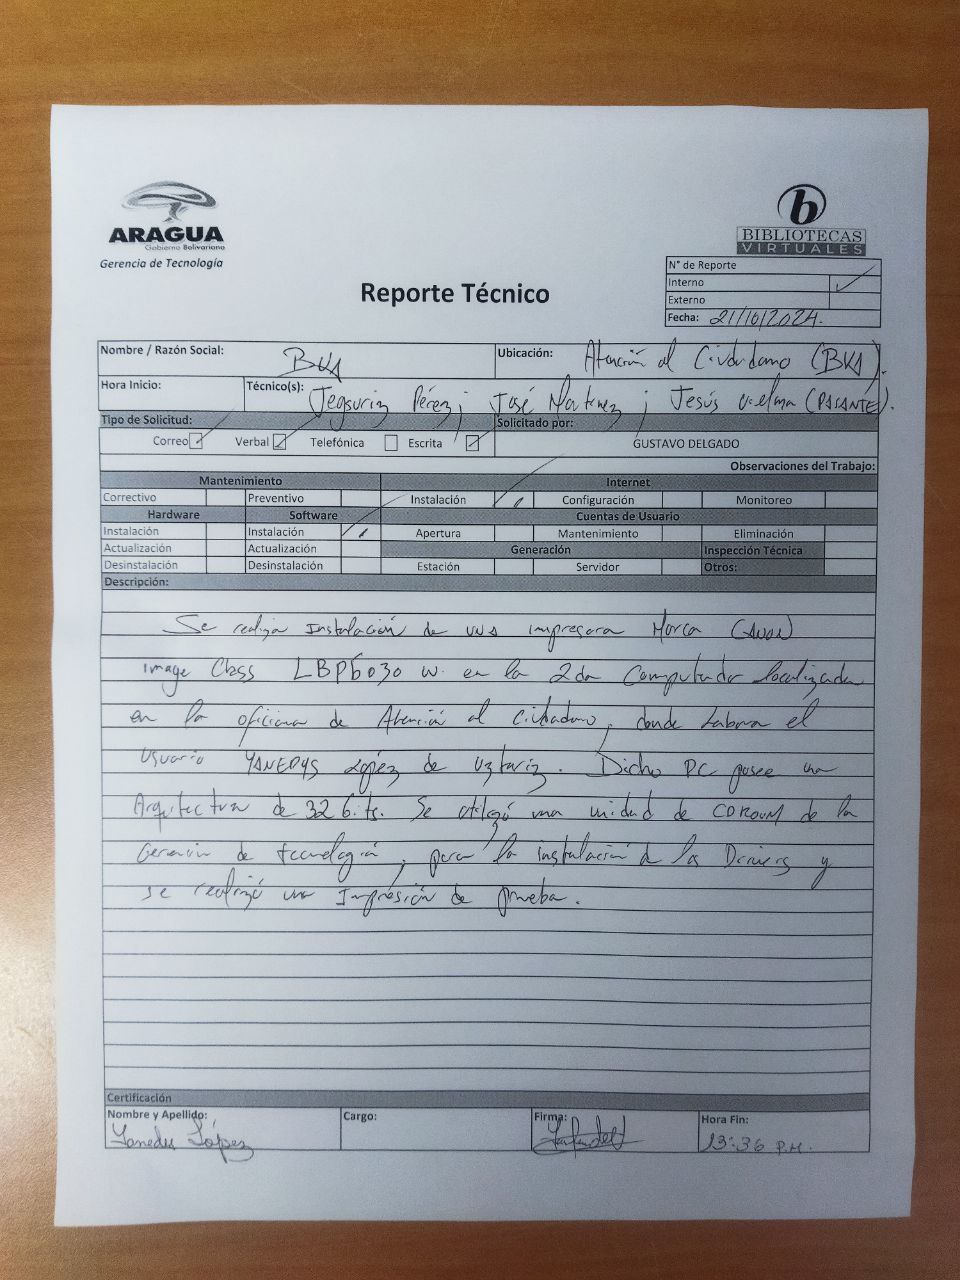 ARAGUA
Gobierno Bolivariano
Gerencia de Tecnología
b
BIBLIOTECAS
VIRTUALES
Reporte Técnico
N° de Reporte
Interno
Externo
Fecha: 21/10/2024.
Nombre / Razón Social: BVA
Ubicación: Atención al Ciudadano (BVA).
Hora Inicio:
Técnico(s): Pérez; José Martinez; Jesús (PASANTE).
Tipo de Solicitud:
Solicitado por:
Correo Verbal Telefónica Escrita
GUSTAVO DELGADO
Observaciones del Trabajo:
Mantenimiento Internet
Correctivo Preventivo Instalación Configuración Monitoreo
Hardware Software Cuentas de Usuario
Instalación Instalación Apertura Mantenimiento Eliminación
Actualización Actualización Generación Inspección Técnica
Desinstalación Desinstalación Estación Servidor Otros:
Descripción:
Se realiza Instalación de una impresora Marca Canon
Image Class LBP6030 w. en la 2da Computador localizada
en la oficina de Atención al Ciudadano, donde labora el
Usuario YANEDYS López de Uztariz. Dicho PC posee una
Arquitectura de 32 Bits. Se utilizó una unidad de CDROUM de la
Gerencia de tecnología, para la instalación de los Drivers y
se realizó una Impresión de prueba.
Certificación
Nombre y Apellido:
Yanedys López
Cargo:
Firma:
Hora Fin:
13:36 P.M.